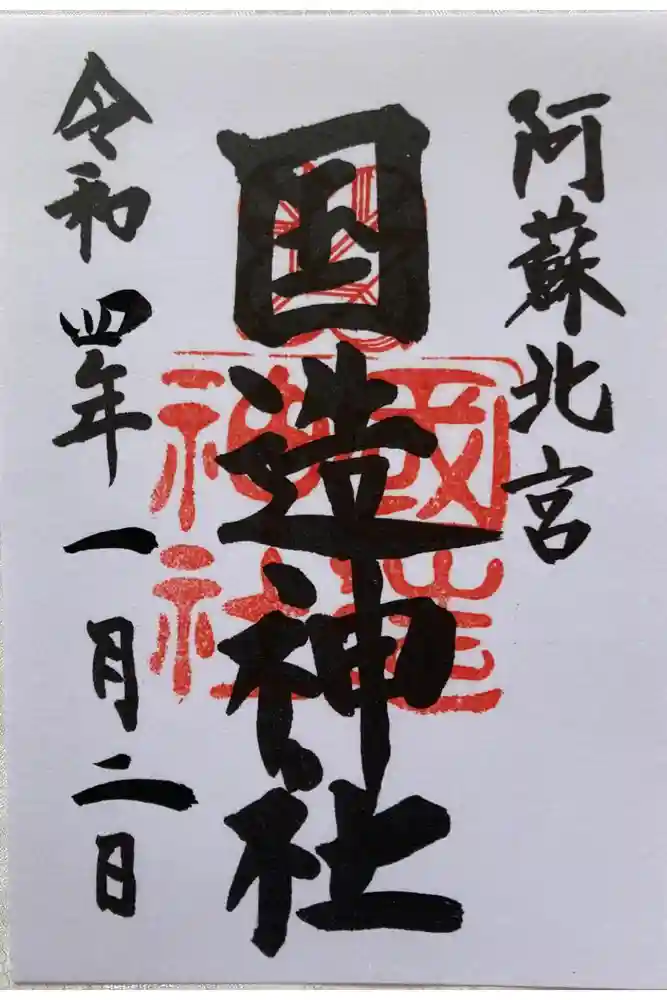 阿蘇北宮
国造神社
令和四年一月二日
國造
神社